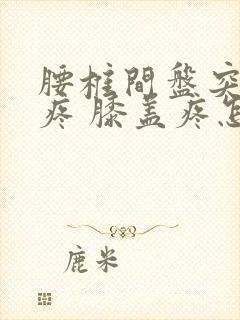 腰柱間盤突
疼 膝盖疼怎
鹿米